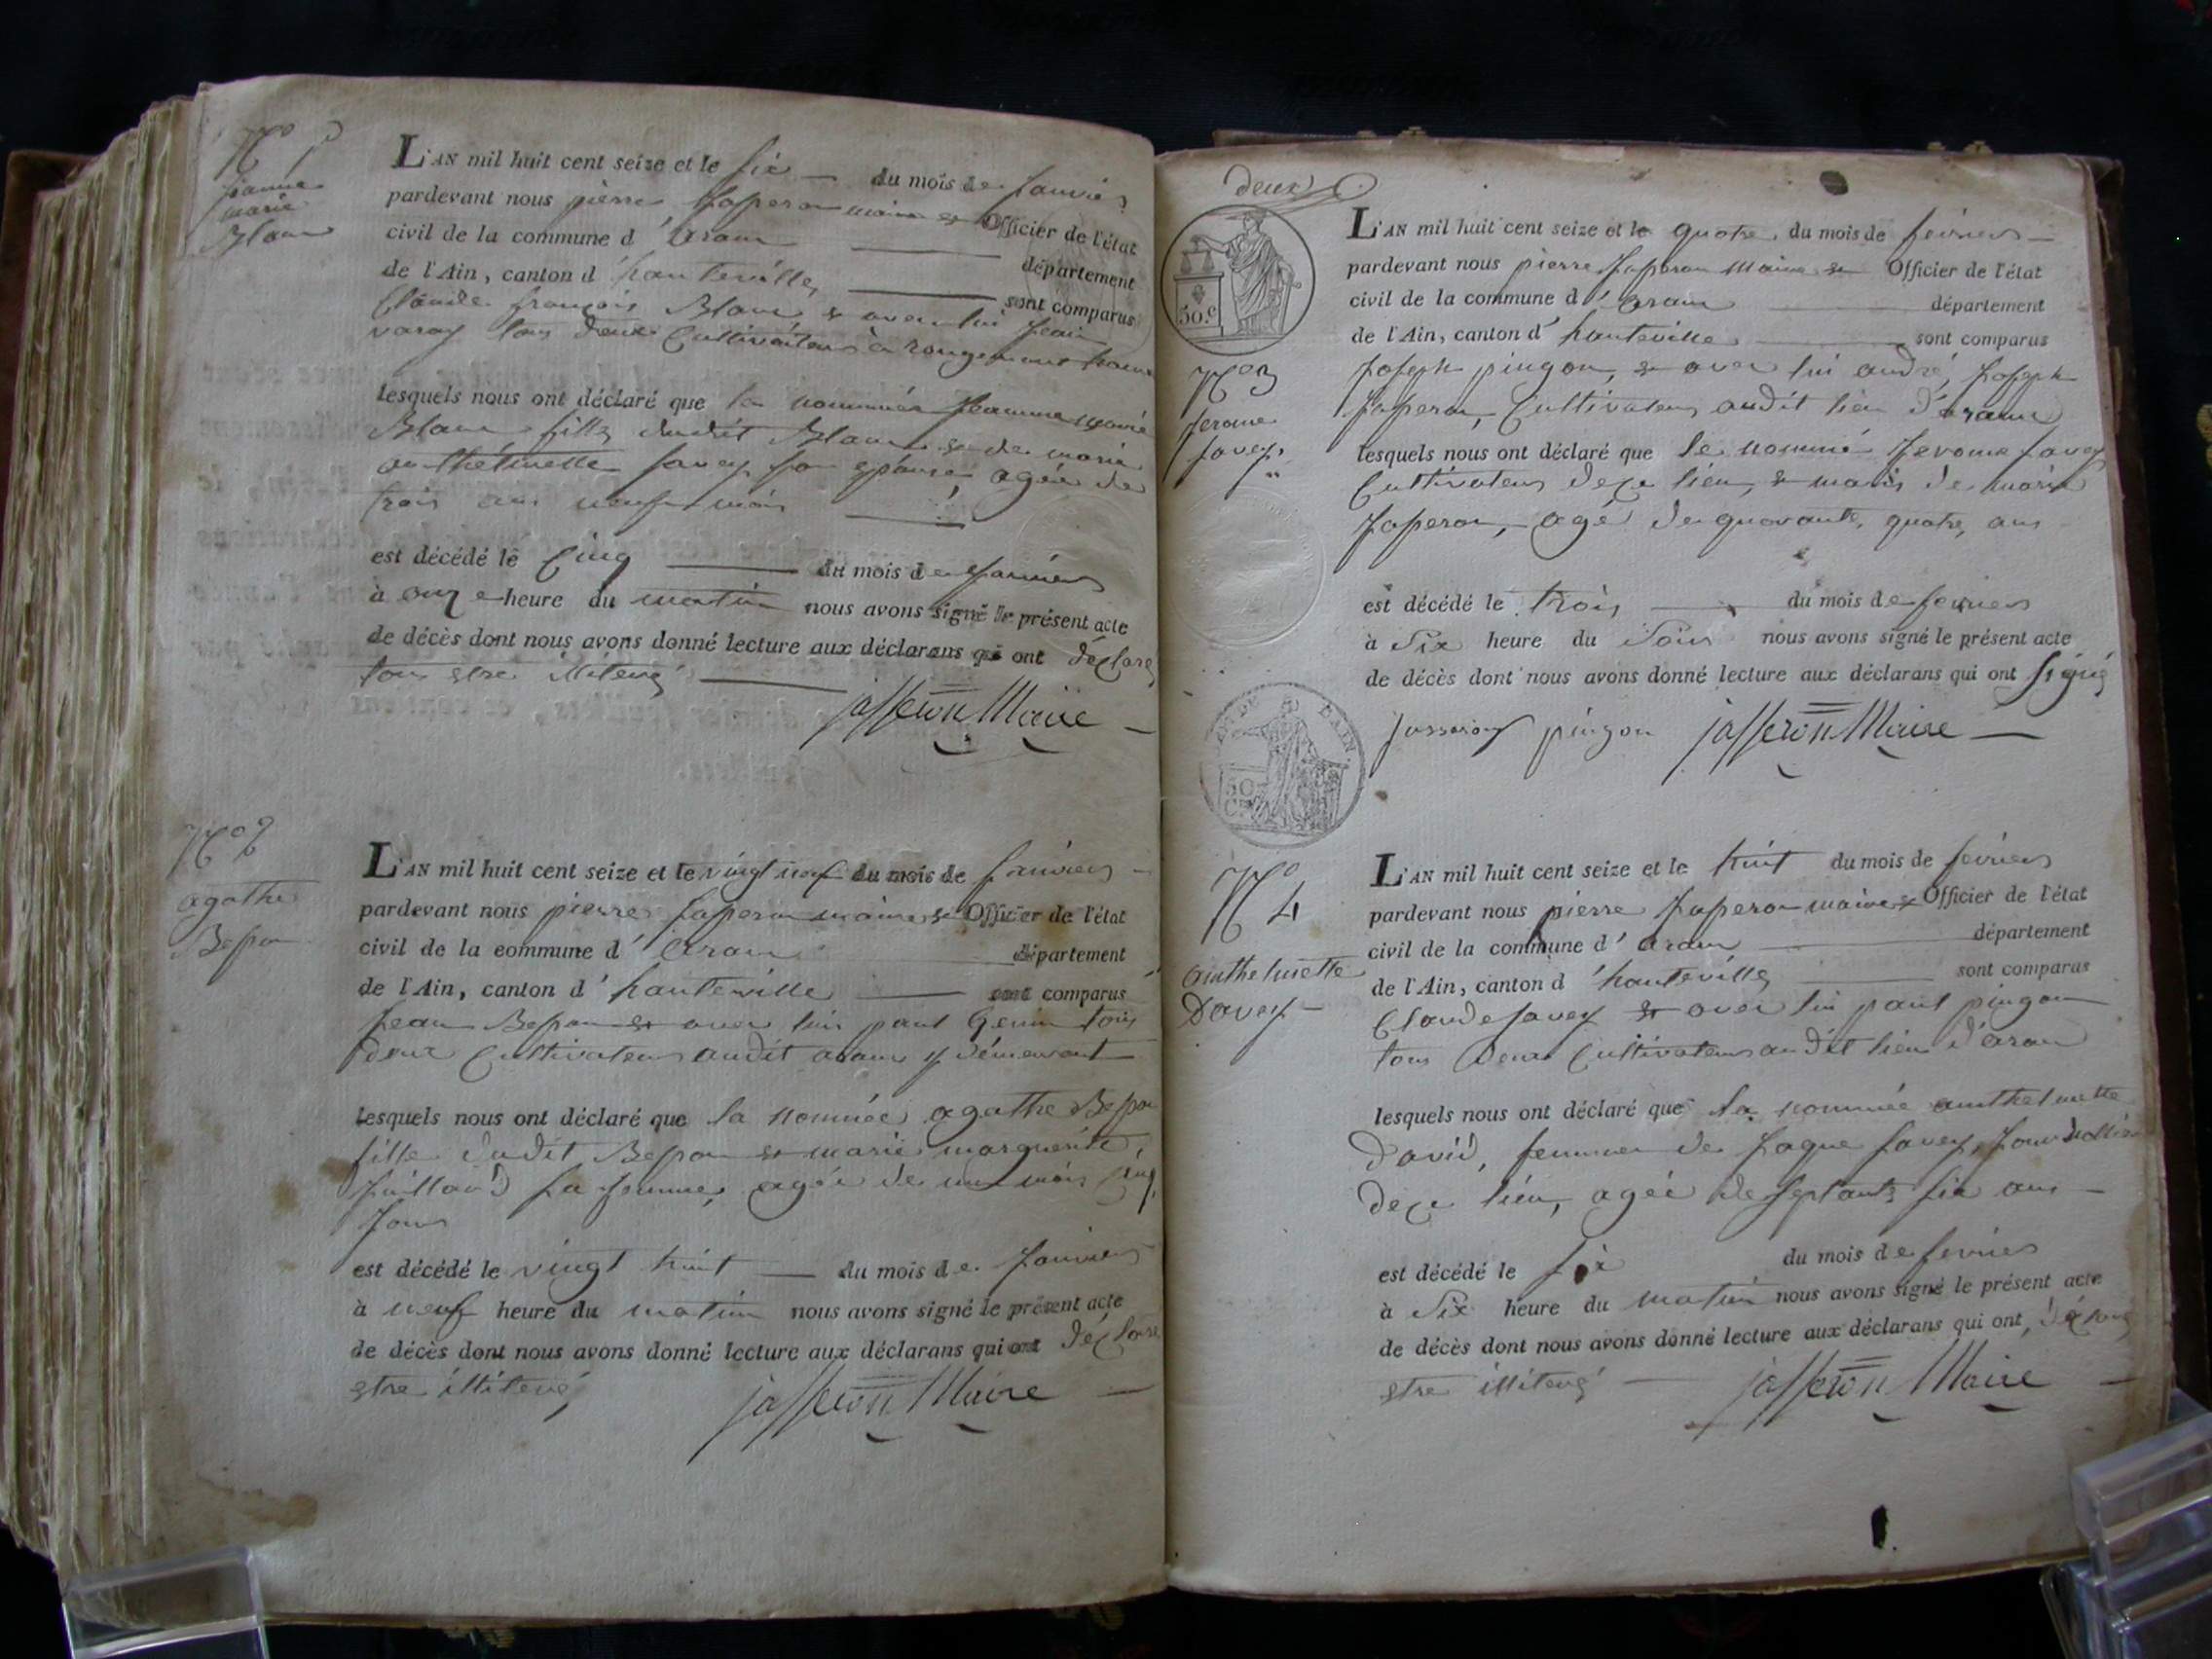 N° 1
jeanne
marie
Blanc
L'AN mil huit cent seize et le six du mois de janvier
pardevant nous pierre Jasseron maire & Officier de l'état
civil de la commune d'aranc département
de l'Ain, canton d'hauteville sont comparus
Claude françois Blanc & avec lui jean
varay tous deux Cultivateurs à rougemont
lesquels nous ont déclaré que la nommée jeanne marie
Blanc fille dudit Blanc & de marie
anthelmette savey son épouse, agée de
trois ans neuf mois
est décédé le Cinq du mois de janvier
à onze heure du matin nous avons signé le présent acte
de décès dont nous avons donné lecture aux déclarans qui ont déclaré
tous estre illiteré
jasseron Maire
N° 2
agathe
Besson
L'AN mil huit cent seize et le vingt neuf du mois de janvier
pardevant nous pierre Jasseron maire & Officier de l'état
civil de la commune d'aranc département
de l'Ain, canton d'hauteville sont comparus
jean Besson & avec lui paul Genin tous
deux Cultivateurs audit aranc y démeurant
lesquels nous ont déclaré que la nommée agathe Besson
fille dudit Besson & marie marguerite
juillard sa femme, agée de un mois cinq
jours
est décédé le vingt huit du mois de janvier
à neuf heure du matin nous avons signé le présent acte
de décès dont nous avons donné lecture aux déclarans qui ont déclaré
estre illiteré
jasseron Maire
deux
50.c
N° 3
jerome
savey
L'AN mil huit cent seize et le quatre du mois de février
pardevant nous pierre Jasseron Maire & Officier de l'état
civil de la commune d'aranc département
de l'Ain, canton d'hauteville sont comparus
joseph pingon, & avec lui andré, joseph
Jasseron, Cultivateurs audit lieu d'aranc
lesquels nous ont déclaré que le nommé jerome savey
Cultivateur de ce lieu, & maris de marie
Jasseron, agé de quarante quatre ans
est décédé le trois du mois de fevrier
à Six heure du Soir nous avons signé le présent acte
de décès dont nous avons donné lecture aux déclarans qui ont signé
Jasseron pingon jasseron Maire
N° 4
anthelmette
Davey
L'AN mil huit cent seize et le huit du mois de février
pardevant nous pierre Jasseron maire & Officier de l'état
civil de la commune d'aranc département
de l'Ain, canton d'hauteville sont comparus
Claude savey & avec lui paul pingon
tous deux Cultivateurs audit lieu d'aranc
lesquels nous ont déclaré que la nommée anthelmette
david, femme de jaque savey, journallier
de ce lieu, agée de septante six ans
est décédé le six du mois de fevrier
à Six heure du matin nous avons signé le présent acte
de décès dont nous avons donné lecture aux déclarans qui ont déclaré
estre illiteré jasseron Maire